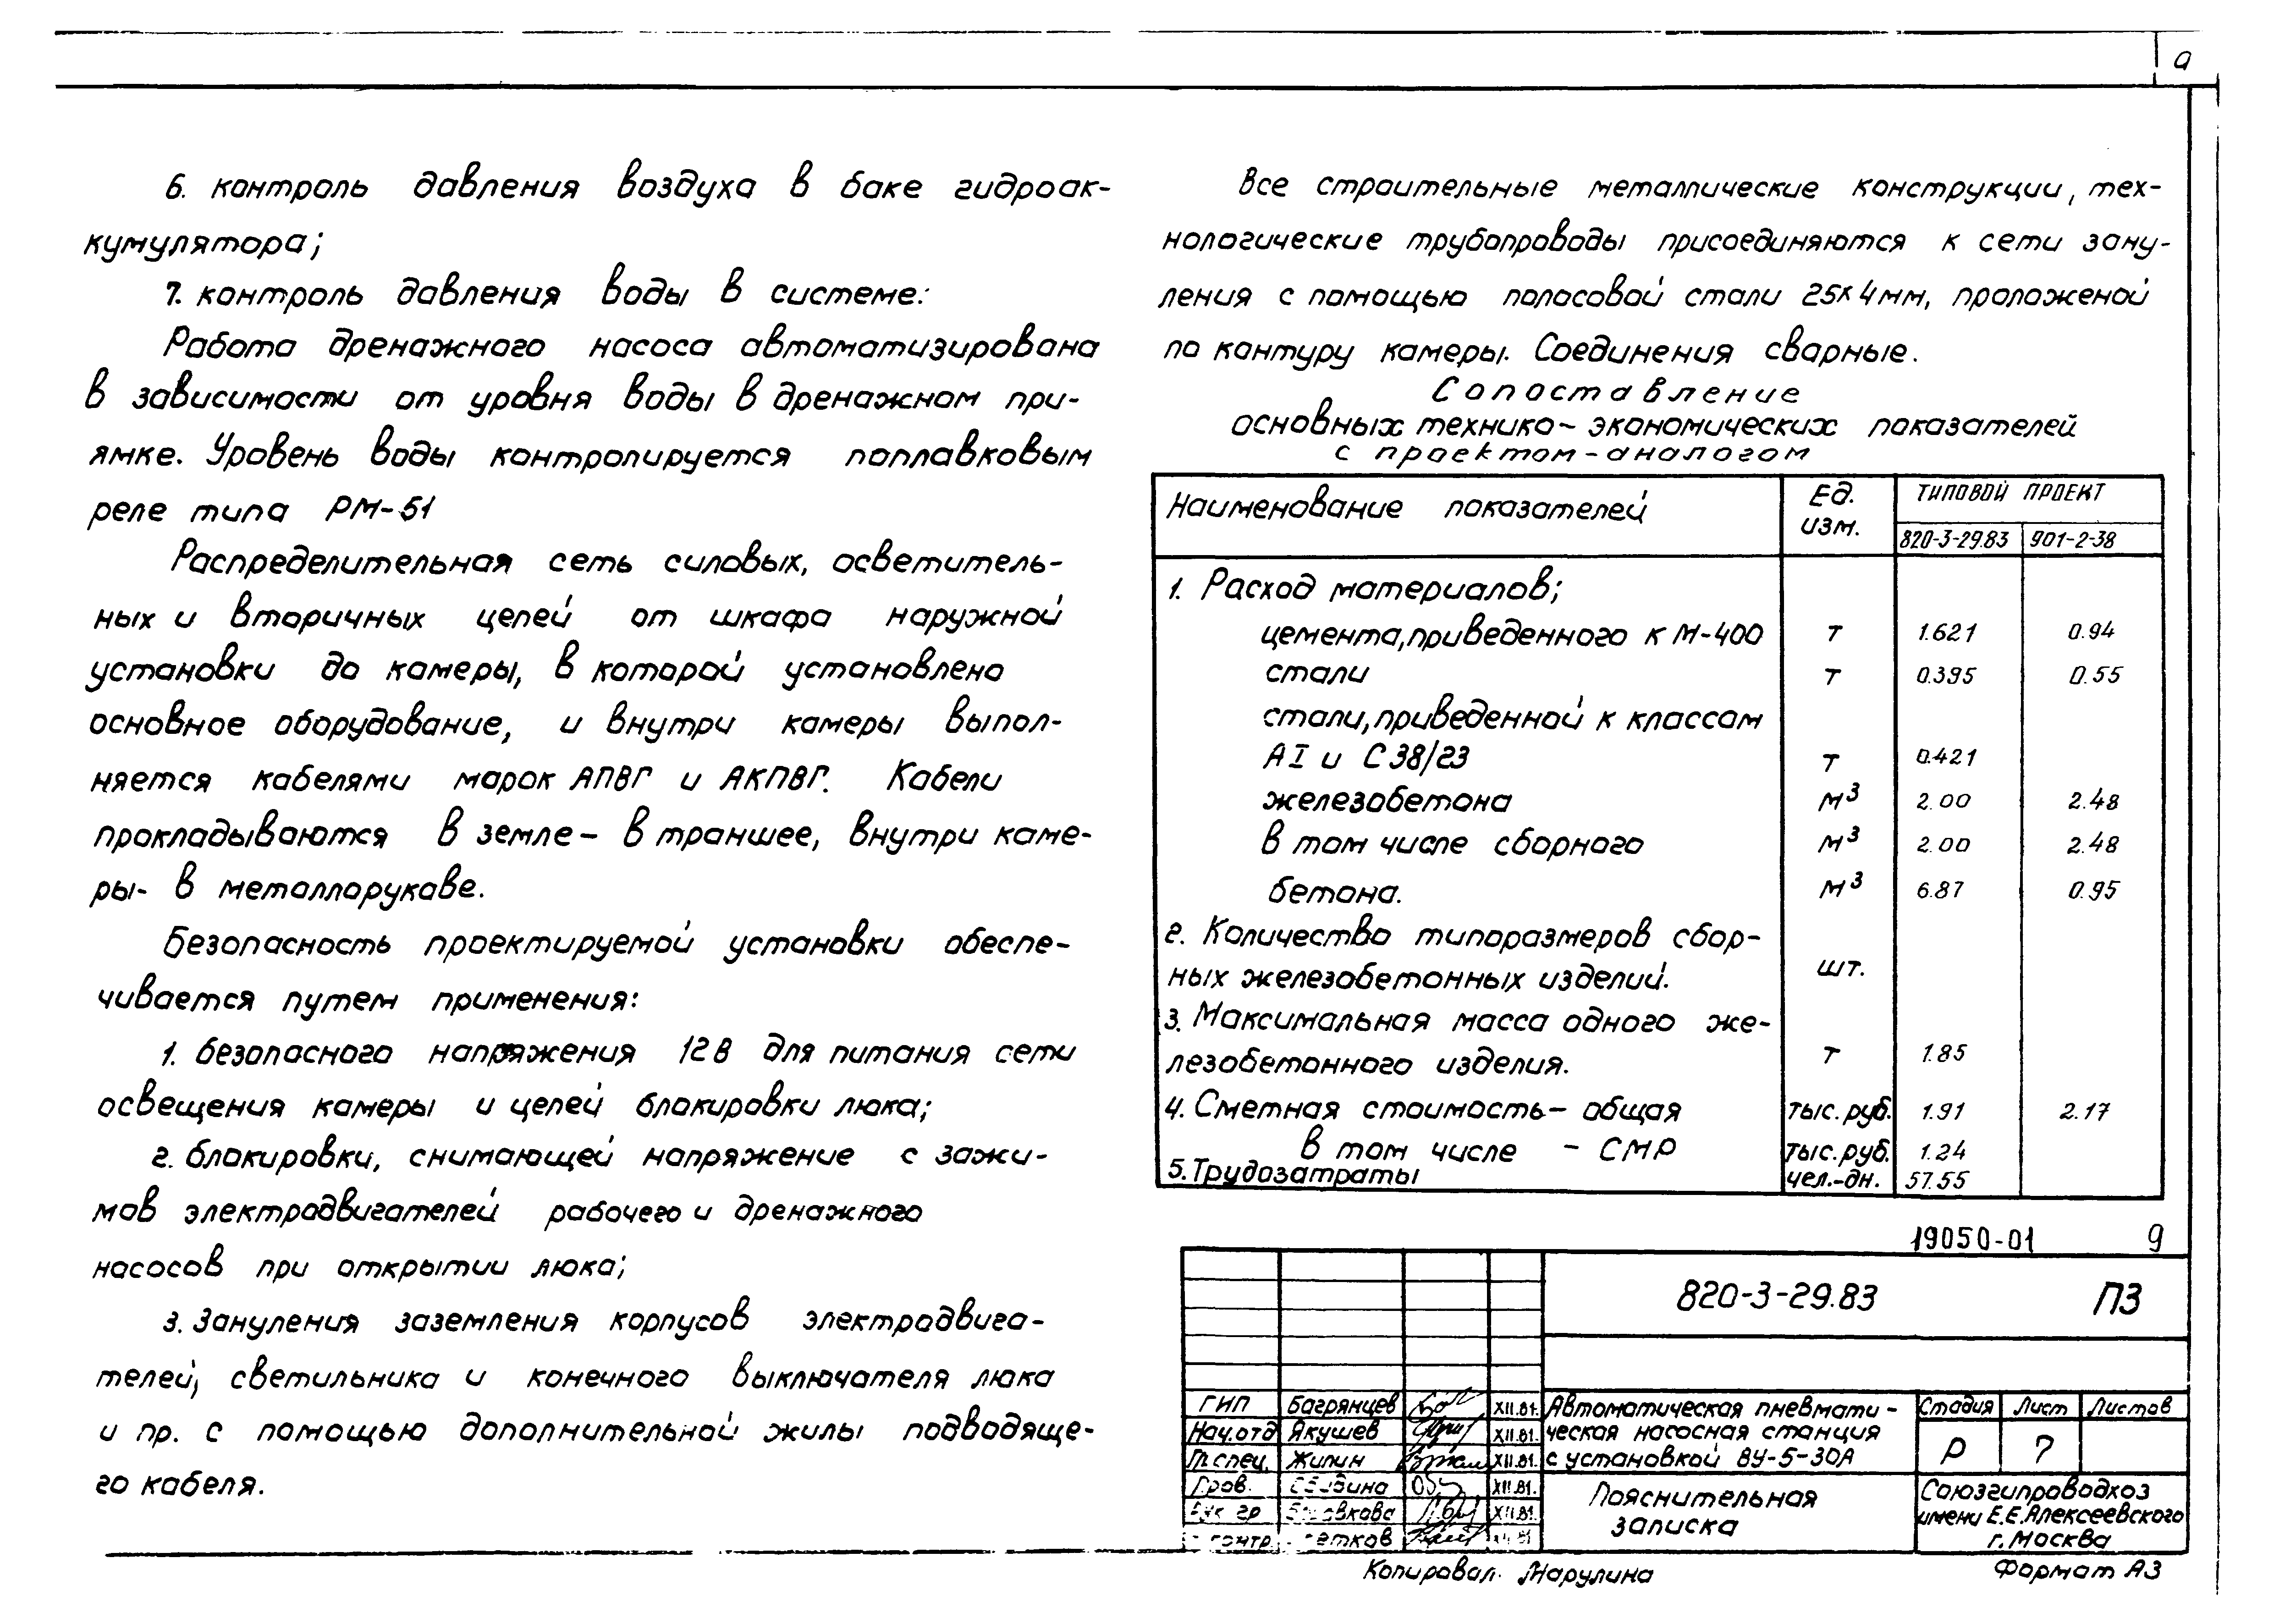 6. контроль давления воздуха в баке гидроак-
кумулятора;
7. контроль давления воды в системе:
Работа дренажного насоса автоматизирована
в зависимости от уровня воды в дренажном при-
ямке. Уровень воды контролируется поплавковым
реле типа РМ-51
Распределительная сеть силовых, осветитель-
ных и вторичных цепей от шкафа наружной
установки до камеры, в которой установлено
основное оборудование, и внутри камеры выпол-
няется кабелями марок АПВГ и АКПВГ. Кабели
прокладываются в земле - в траншее, внутри каме-
ры- в металлорукаве.
Безопасность проектируемой установки обеспе-
чивается путем применения:
1. безопасного напряжения 12В для питания сети
освещения камеры и цепей блокировки люка;
2. блокировки, снимающей напряжение с зажи-
мов электродвигателей рабочего и дренажного
насосов при открытии люка;
3. Зануления заземления корпусов электродвига-
телей, светильника и конечного выключателя люка
и пр. с помощью дополнительной жилы подводяще-
го кабеля.
Все строительные металлические конструкции, тех-
нологические трубопроводы присоединяются к сети зану-
ления с помощью полосовой стали 25х4мм, проложеной
по контуру камеры. Соединения сварные.
Сопоставление
основных технико- экономических показателей
с проектом-аналогом
Наименование показателей Ед. изм. ТИПОВОЙ ПРОЕКТ
820-3-29.83 901-2-38
1. Расход материалов;
цемента, приведенного к М-400 т 1.621 0.94
стали т 0.395 0.55
стали, приведенной к классам
АI и С38/23 т 0.421
железобетона м³ 2.00 2.48
в том числе сборного м³ 2.00 2.48
бетона. м³ 6.87 0.95
2. Количество типоразмеров сбор-
ных железобетонных изделий. шт.
3. Максимальная масса одного же-
лезобетонного изделия. т 1.85
4. Сметная стоимость- общая тыс. руб. 1.91 2.17
в том числе - СМР тыс. руб. 1.24
5. Трудозатраты чел.-дн. 57.55
19050-01 9
820-3-29.83 ПЗ
ГИП Багрянцев XII.81.
Нач.отд Якушев XII.81.
Гл.спец. Жилин XII.81.
Пров. XII.81.
Рук гр XII.81.
контр.
Автоматическая пневмати-
ческая насосная станция
с установкой ВУ-5-30А
Стадия Лист Листов
Р 7
Пояснительная
записка
Союзгипроводхоз
имени Е.Е.Алексеевского
г. Москва
Копировал Марулина Формат А3